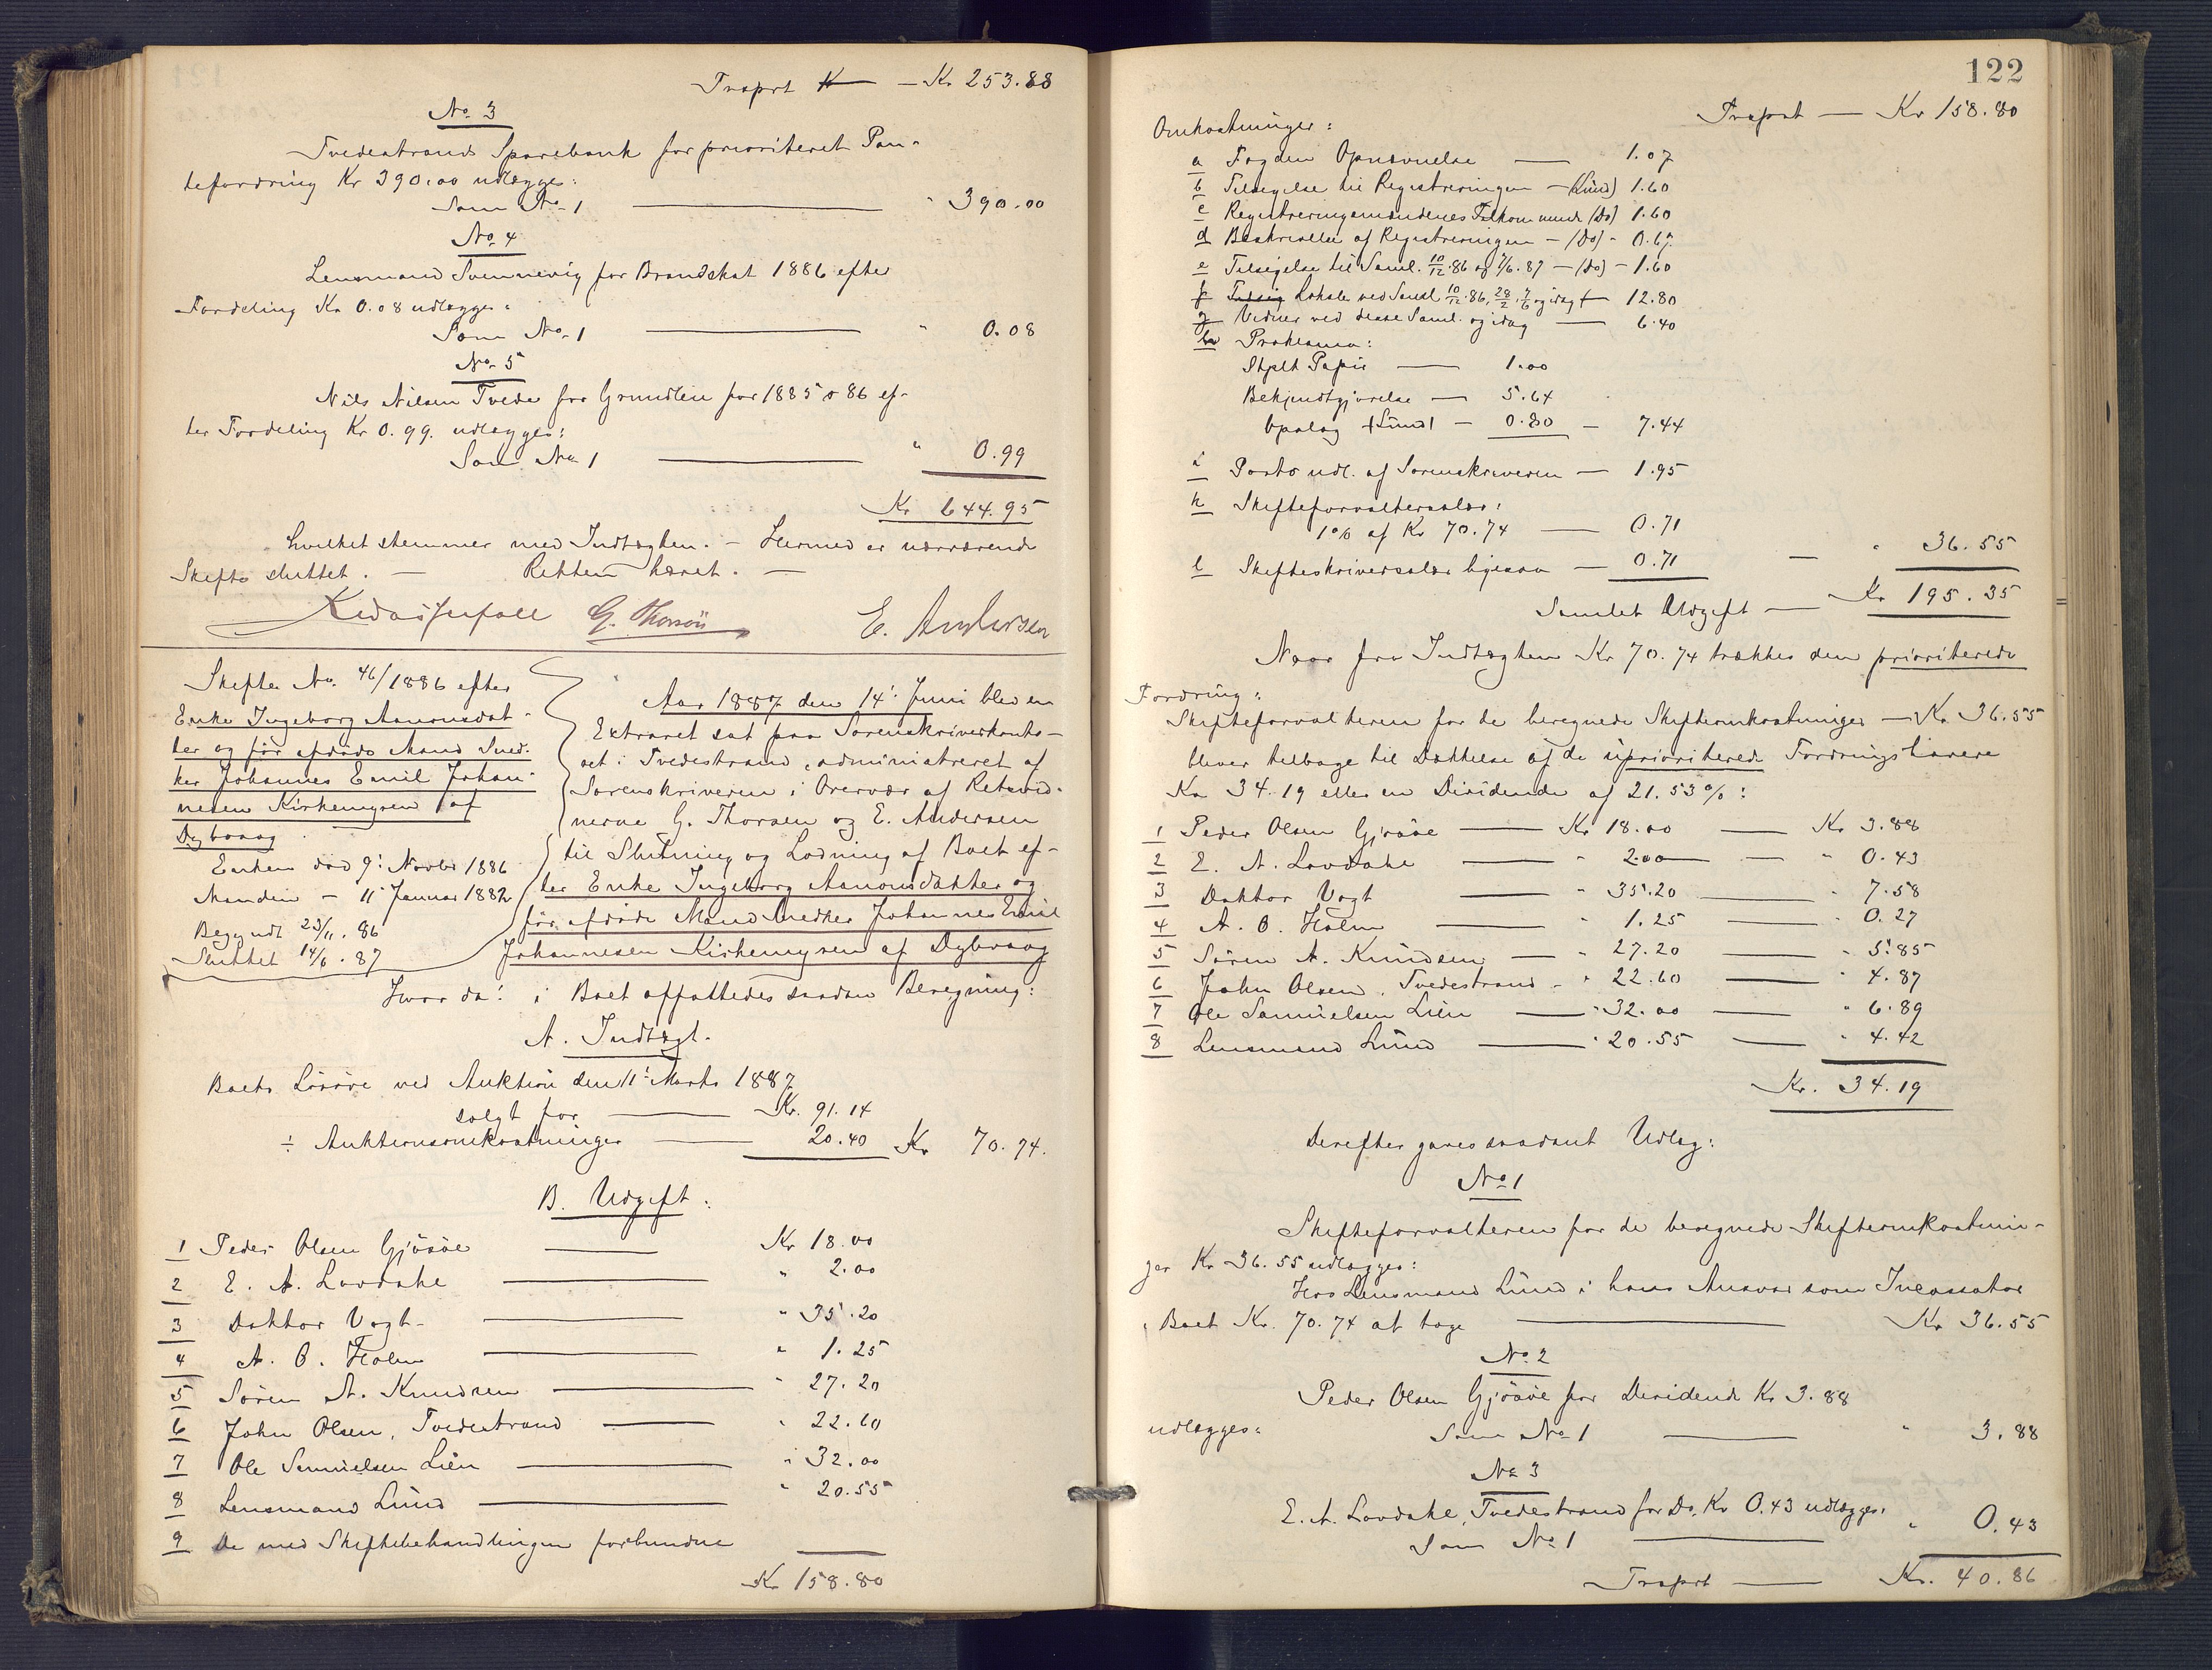 Trsprt — Kr 253.88
No 3
Tvedestrands Sparebank for prioriteret Pan-
tefordring Kr 390.00 udlægges:
Som No 1 — " 390.00
No 4
Lensmand Svennevig for Brandskat 1886 efter
Fordeling Kr 0.08 udlægges:
Som No 1 — " 0.08
No 5
Nils Nilsen Tvede for Grundleie for 1885 o 86 ef-
ter Fordeling Kr 0.99. udlægges:
Som No 1 — " 0.99
Kr 644.95
hvilket stemmer med Indtægten. — Hermed er nærværende
Skifte sluttet. — Retten hævet. —
G. Thorsen E. Andersen
Skifte No. 46/1886 efter
Enke Ingeborg Aanonsdat-
ter og før afdøde Mand Sned-
ker Johannes Emil Johan-
nesen Kirkemyren af
Dybvaag.
Enken død 9' Novbr 1886
Manden — 11' Januar 1882
Begyndt 23/11. 86
Sluttet 14/6. 87
Aar 1887 den 14' Juni blev en
Extraret sat paa Sorenskriverkonto-
ret i Tvedestrand, administreret af
Sorenskriveren i Overvær af Retsvid-
nerne G. Thorsen og E. Andersen
til Slutning og Lodning af Boet ef-
ter Enke Ingeborg Aanonsdatter og
før afdøde Mand Snedker Johannes Emil
Johannesen Kirkemyren af Dybvaag
Hvorda! i Boet affattedes saadan Beregning:
A. Indtægt.
Boets Løsøre ved Auktion den 11' Marts 1887
solgt for — Kr. 91.14
÷ Auktionsomkostninger — 20.40 Kr 70.74.
B. Udgift:
1 Peder Olsen Gjøsøe — Kr 18.00
2 E. A. Lovdahe — " 2.00
3 Doktor Vogt — " 35.20
4 A. O. Holm — " 1.25
5 Søren A. Knudsen — " 27.20
6 John Olsen, Tvedestrand — " 22.60
7 Ole Samuelsen Lien — " 32.00
8 Lensmand Lund — " 20.55
9 De med Skiftebehandlingen forbundne
Kr 158.80
122
Trsprt — Kr 158.80
Omkostninger:
a Fogden Opnævnelse — 1.07
b Tilsigelse til Registreringen — (Lund) 1.60
c Registreringsmændenes Tilkommende (Do) 1.60
d Beskrivelse af Registreringen — (Do) - 0.67
e Tilsigelse til Saml. 10/12. 86 og 7/6. 87 — (Do) - 1.60
f Lokale ved Saml 10/12. 86, 28/2, 7/6 og idag — 12.80
g Vidner ved disse Saml. og idag — 6.40
h Proklama:
Stplt Papir — 1.00
Bekjendtgjørelse — 5.64
Opslag (Lund) — 0.80 — 7.44
i Porto udl. af Sorenskriveren — 1.95
k Skifteforvaltersalær:
1% af Kr 70.74 — 0.71
l Skifteskriversalær ligesaa — 0.71 — " 36.55
Samlet Udgift — Kr 195.35
Naar fra Indtægten Kr 70.74 trækkes den prioriterede
Fordring:
Skifteforvalteren for de beregnede Skifteomkostninger — Kr. 36.55
bliver tilbage til Dækkelse af de upriori­terede Fordringshavere
Kr 34.19 eller en Dividende af 21.53%:
1 Peder Olsen Gjøsøe — Kr 18.00 — Kr 3.88
2 E. A. Lovdahe — " 2.00 — " 0.43
3 Doktor Vogt — " 35.20 — " 7.58
4 A. O. Holm — " 1.25 — " 0.27
5 Søren A. Knudsen — " 27.20 — " 5.85
6 John Olsen, Tvedestrand - " 22.60 — " 4.87
7 Ole Samuelsen Lien — " 32.00 — " 6.89
8 Lensmand Lund — " 20.55 — " 4.42
Kr. 34.19
Derefter gøres saadant Udlæg:
No 1
Skifteforvalteren for de beregnede Skifteomkostnin-
ger Kr 36.55 udlægges:
Hos Lensmand Lund i hans Ansvar som Incassator
i Boet Kr. 70.74 at tage — Kr 36.55
No 2
Peder Olsen Gjøsøe for Dividende Kr 3.88
udlægges:
Som No 1 — " 3.88
No 3
E. A. Lovdahe, Tvedestrand for Do. Kr 0.43 udlægges:
Som No 1 — " 0.43
Trsprt — Kr. 40.86